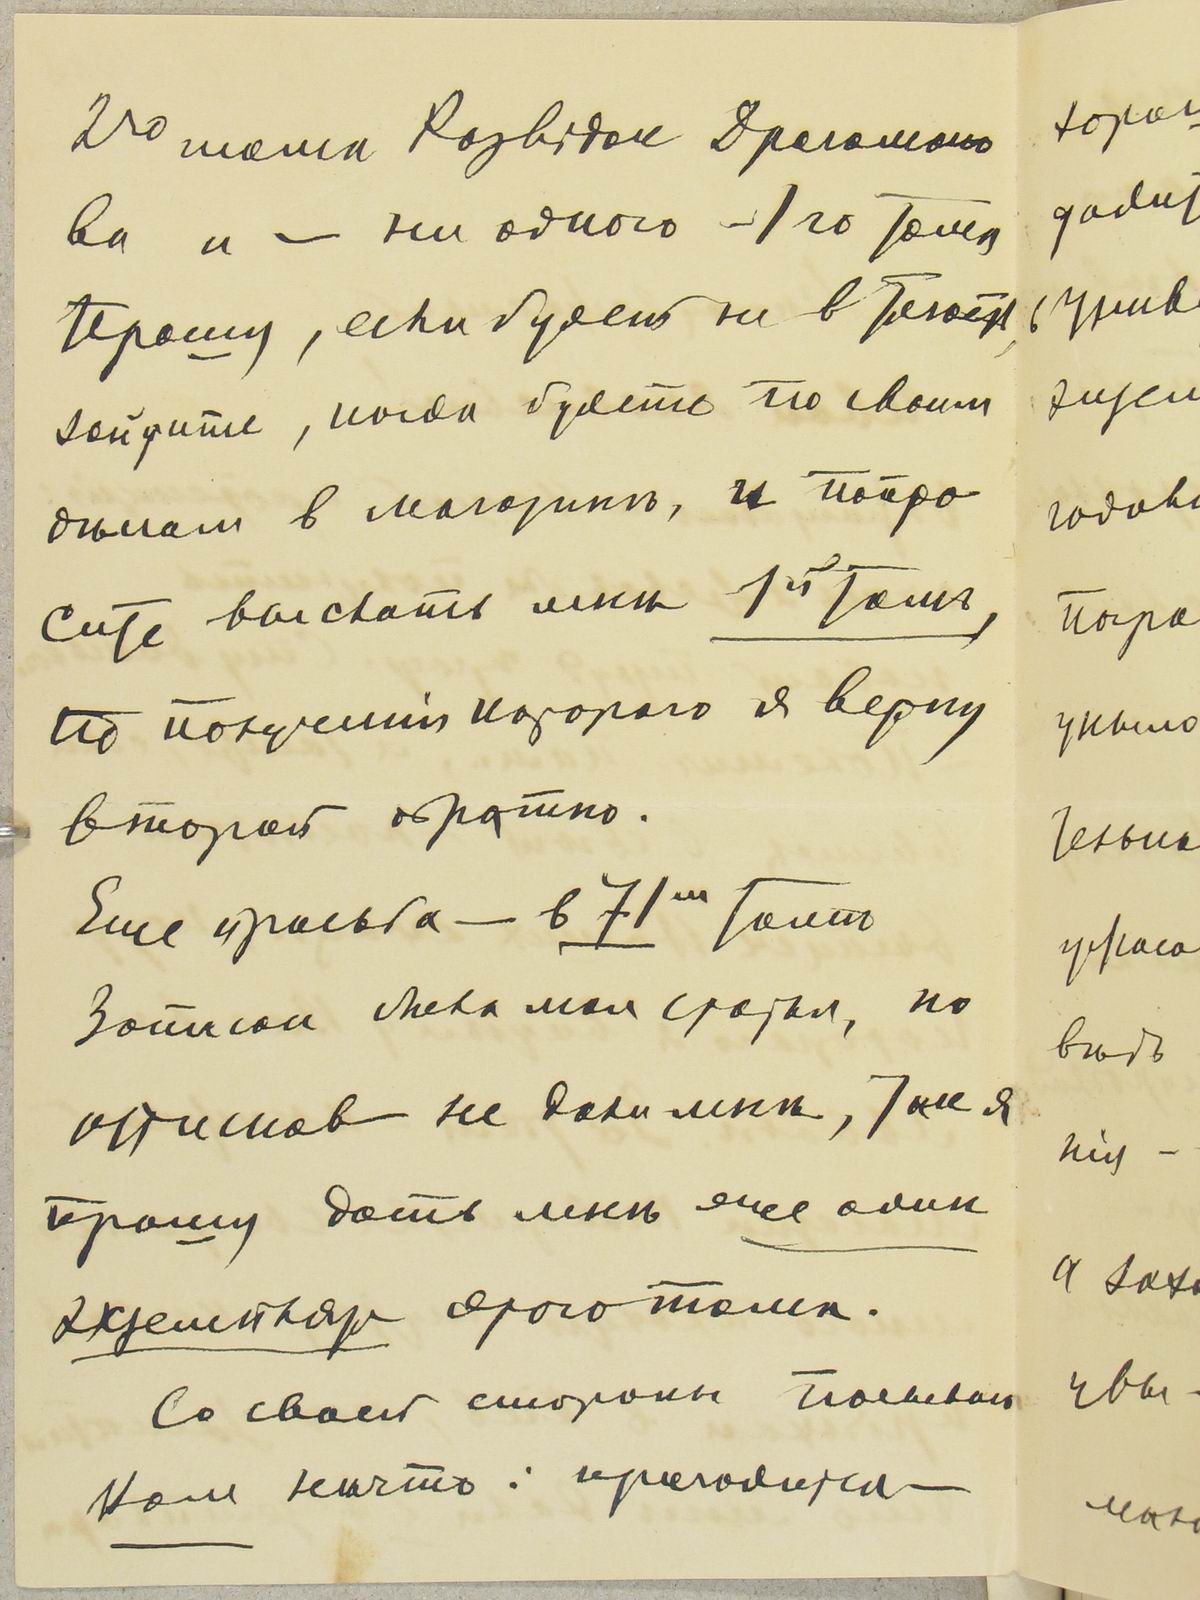 2го тома Розвідок Драгомано
ва и — ни одного — 1го тома
Прошу, если будет не в тягость,
зайдите, когда будете по своим
дѣлам в магазинъ, и попро
сите выслать мнѣ 1й томъ,
по полученіи котораго я верну
второй обратно.
Еще просьба — в 71м томѣ
Записок была моя статья, но
оттисков не дали мнѣ, так я
прошу дать мнѣ еще один
экземпляр этого тома.
Со своей стороны посылаю
Вам нѣчто: пригодится —
годовы
уныло
вѣдь
нія —
увы —